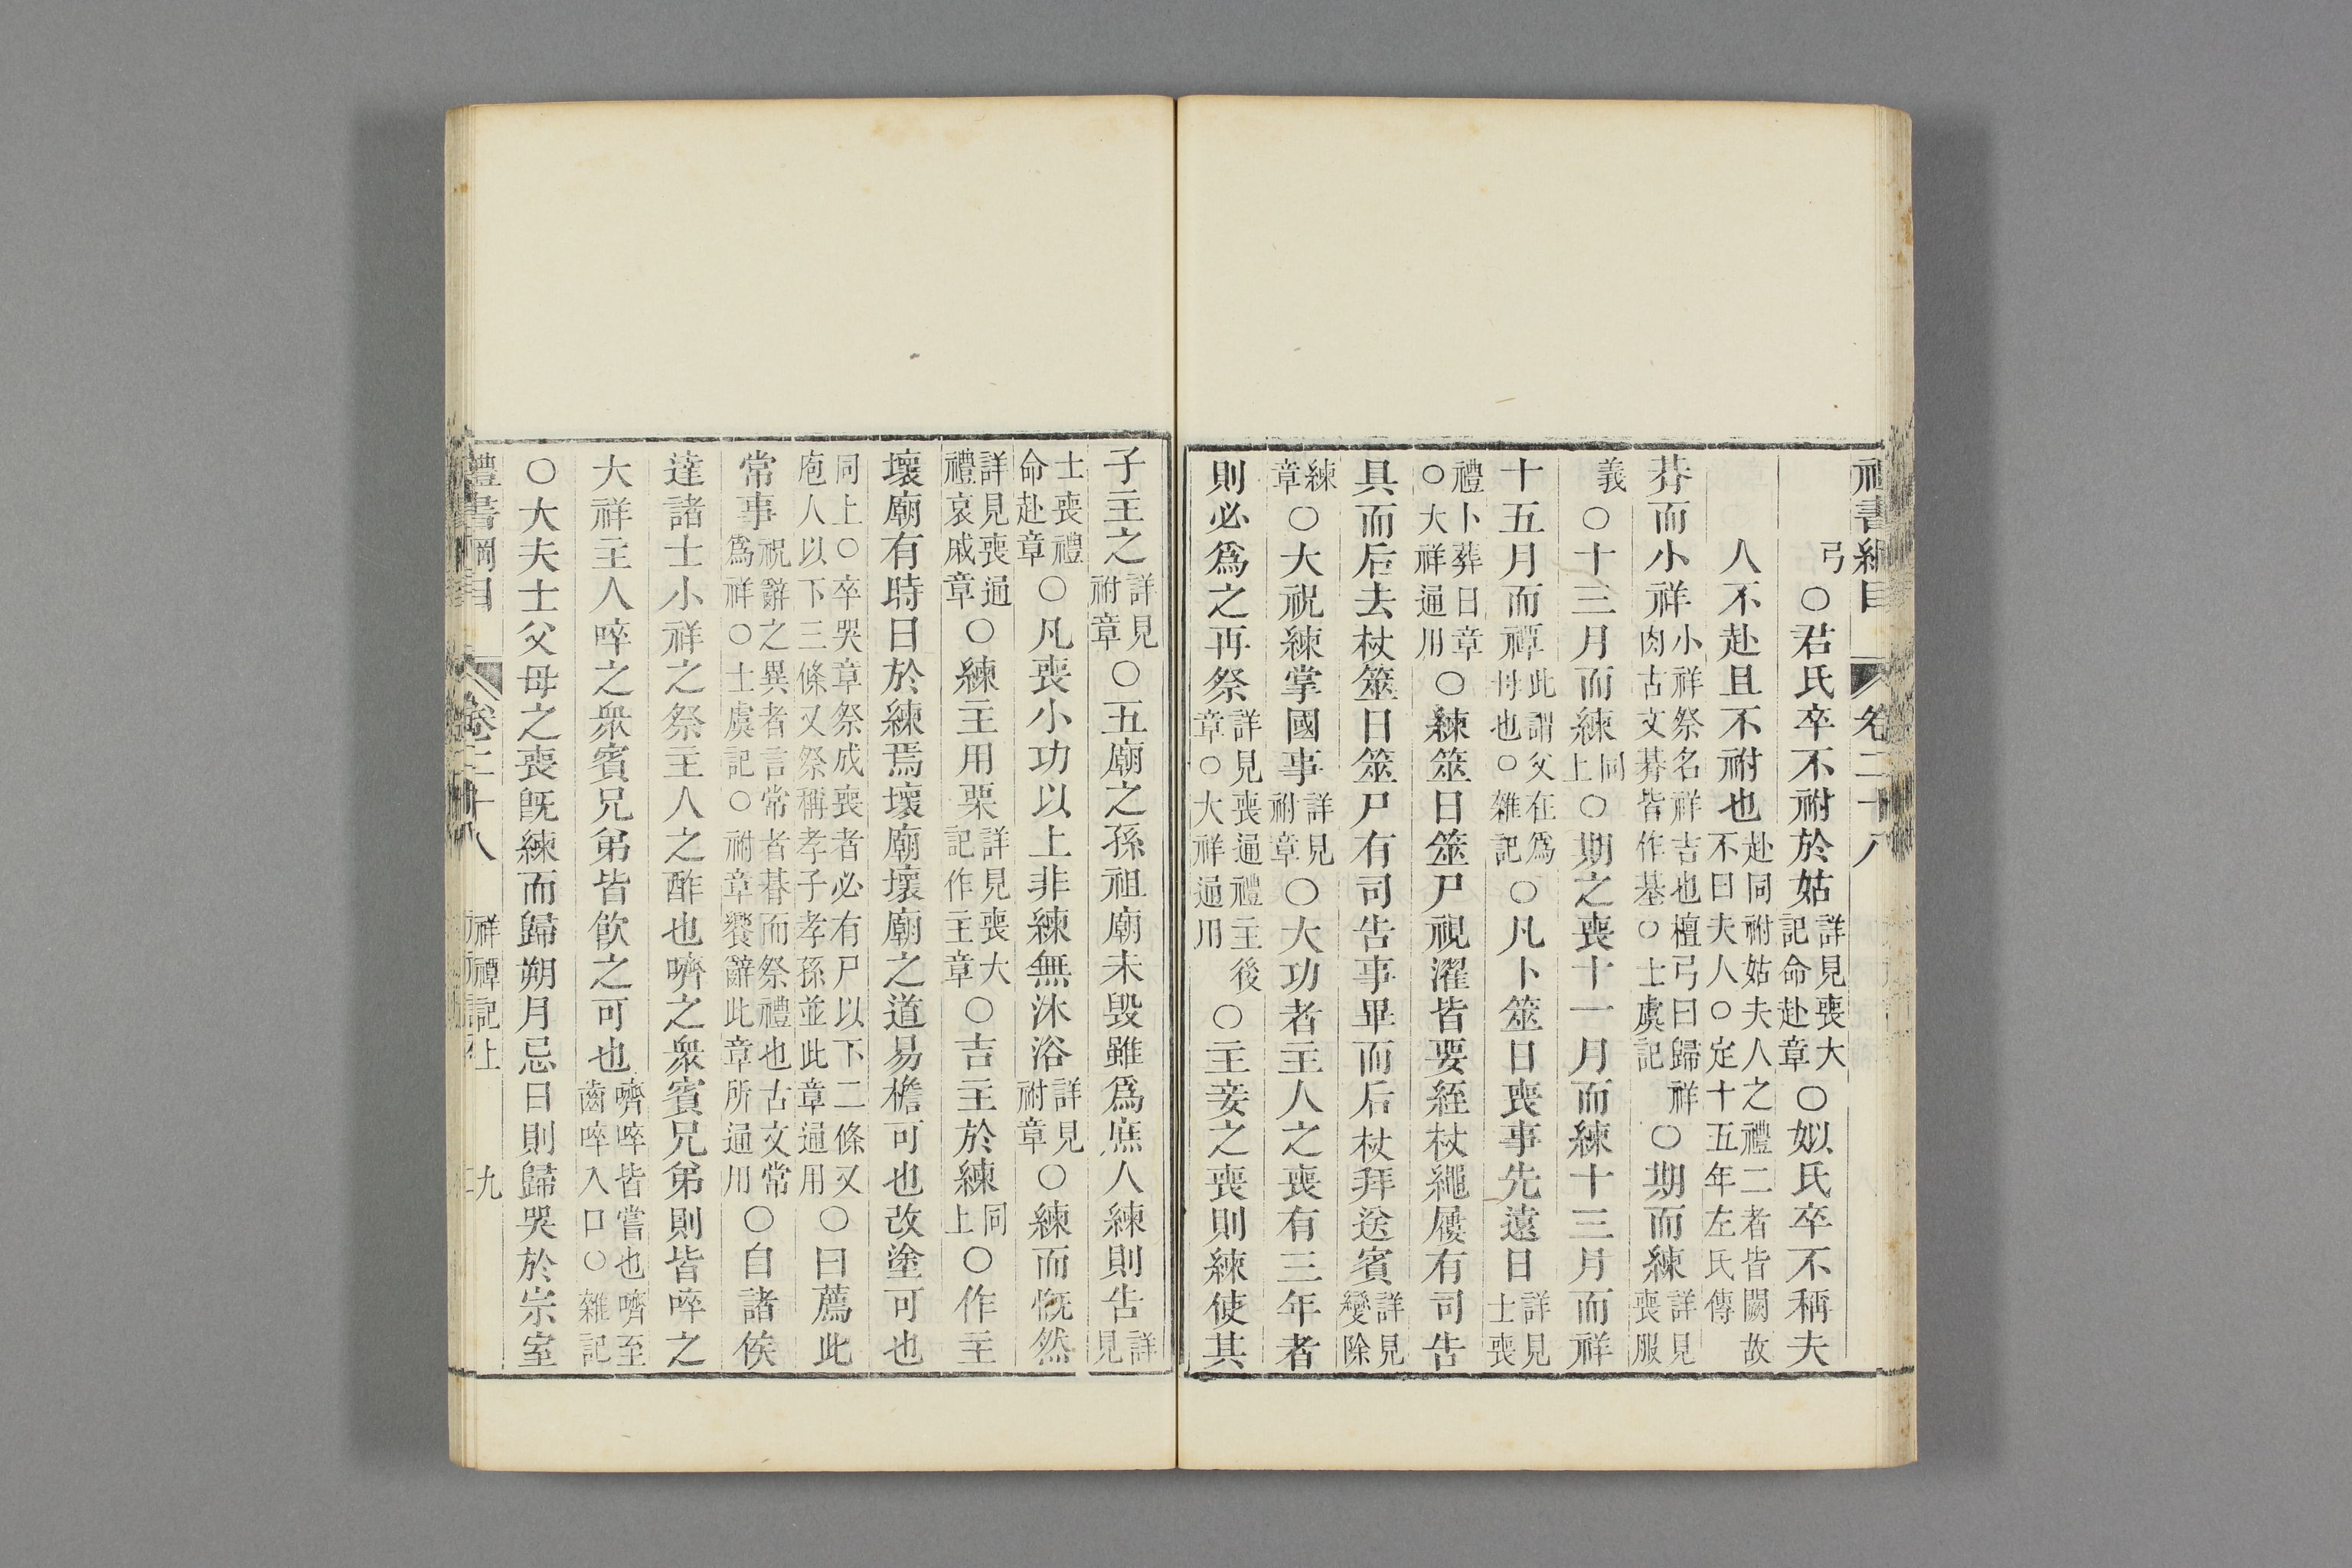 禮書綱目 卷二十八
弓○君氏卒不祔於姑詳見喪大記命赴章○姒氏卒不稱夫
人不赴且不祔也赴同祔姑夫人之禮二者皆闕故不曰夫人○定十五年左氏傳
朞而小祥小祥祭名祥吉也檀弓曰歸祥肉古文朞皆作基○士虞記○期而練詳見喪服
義○十三月而練同上○期之喪十一月而練十三月而祥
十五月而禫此謂父在爲母也○雜記○凡卜筮日喪事先遠日詳見士喪
禮卜葬日章○大祥通用○練筮日筮尸視濯皆要絰杖繩屨有司告
具而后去杖筮日筮尸有司告事畢而后杖拜送賓詳見變除
練章○大祝練掌國事詳見祔章○大功者主人之喪有三年者
則必爲之再祭詳見喪通禮主後章○大祥通用○主妾之喪則練使其
子主之詳見祔章○五廟之孫祖廟未毁雖爲庶人練則告詳見
士喪禮命赴章○凡喪小功以上非練無沐浴詳見祔章○練而慨然
詳見喪通禮哀戚章○練主用栗詳見喪大記作主章○吉主於練同上○作主
壞廟有時日於練焉壞廟壞廟之道易檐可也改塗可也
同上○卒哭章祭成喪者必有尸以下二條又庖人以下三條又祭稱孝子孝孫並此章通用○曰薦此
常事祝辭之異者言常者朞而祭禮也古文常爲祥○士虞記○祔章饗辭此章所通用○自諸侯
達諸士小祥之祭主人之酢也嚌之衆賓兄弟則皆啐之
大祥主人啐之衆賓兄弟皆飲之可也嚌啐皆嘗也嚌至齒啐入口○雜記
○大夫士父母之喪旣練而歸朔月忌日則歸哭於宗室
禮書綱目 卷二十八 祥禫記上 九